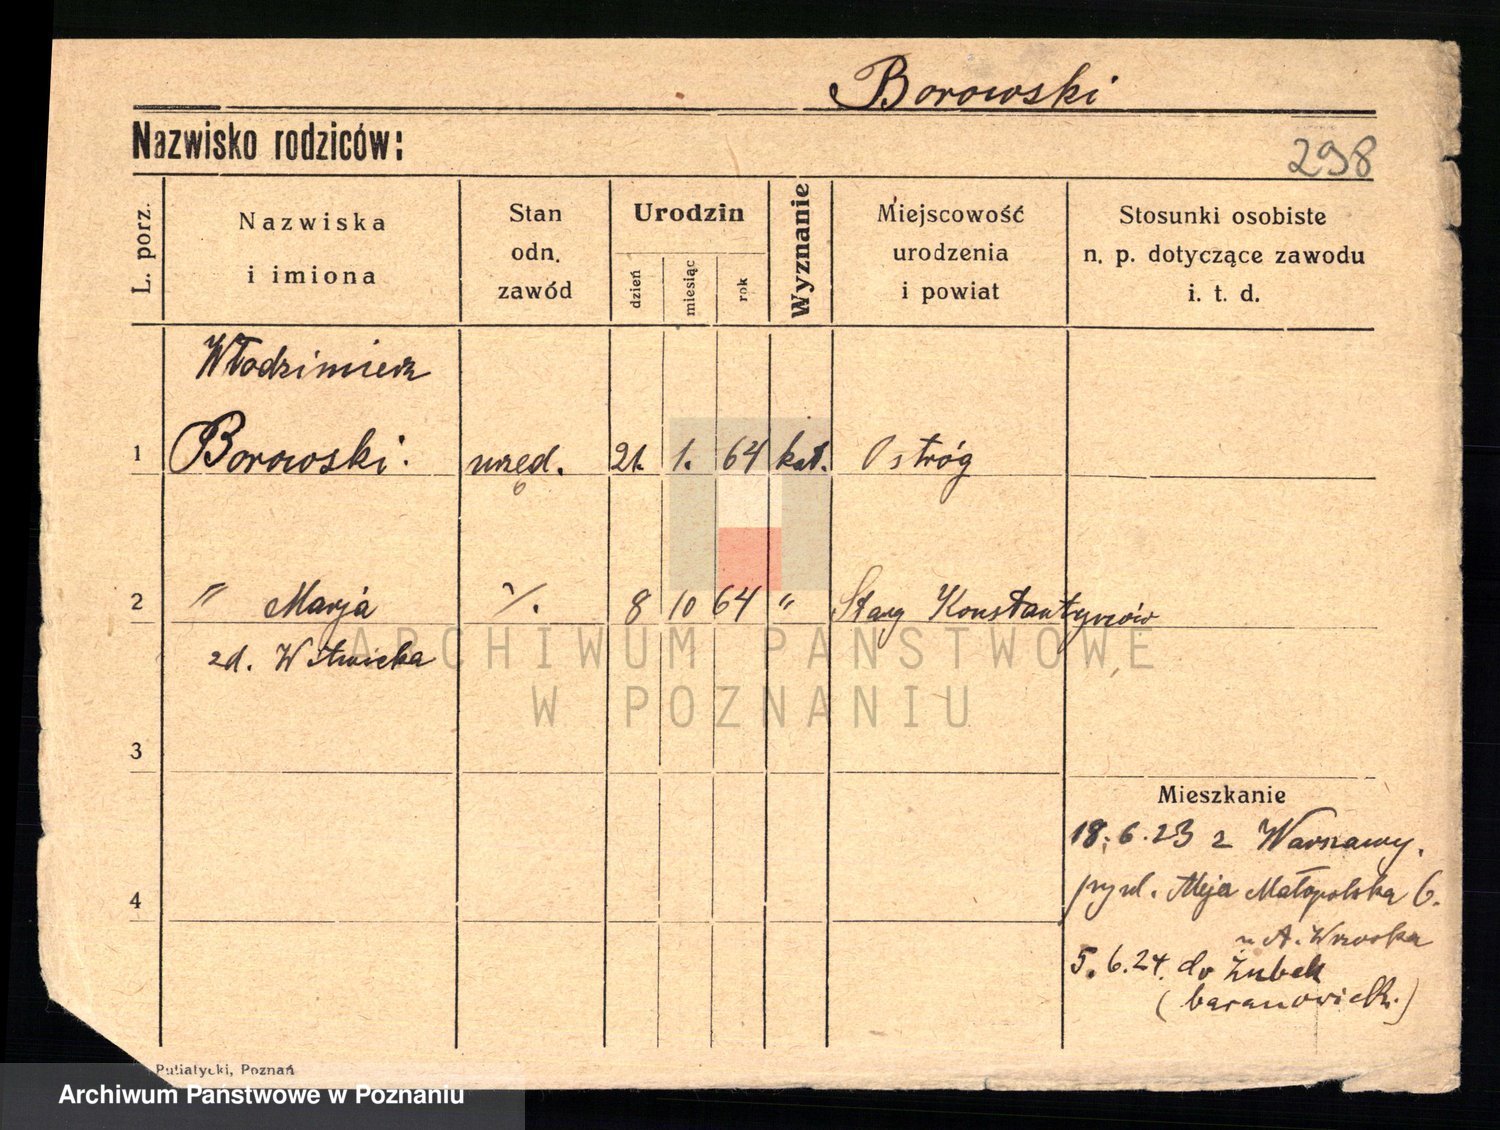 Borowski
Nazwisko rodziców:
298
L. porz.
Nazwiska
i imiona
Stan
odn.
zawód
Urodzin
dzień
miesiąc
rok
Wyznanie
Miejscowość
urodzenia
i powiat
Stosunki osobiste
n. p. dotyczące zawodu
i. t. d.
Włodzimierz
1 Borowski. urzęd. 21. 1. 64 kat. Ostróg
2 " Marja 8 10 64 " Stary Konstantynów
zd. Witwicka
3
Mieszkanie
18.6.23 z Warszawy.
4
Aleja Małopolska 6.
u A. Wrzoska
5.6.24. do Żubek
(baranowick.)
Putiatycki, Poznań
ARCHIWUM PAŃSTWOWE
W POZNANIU
Archiwum Państwowe w Poznaniu